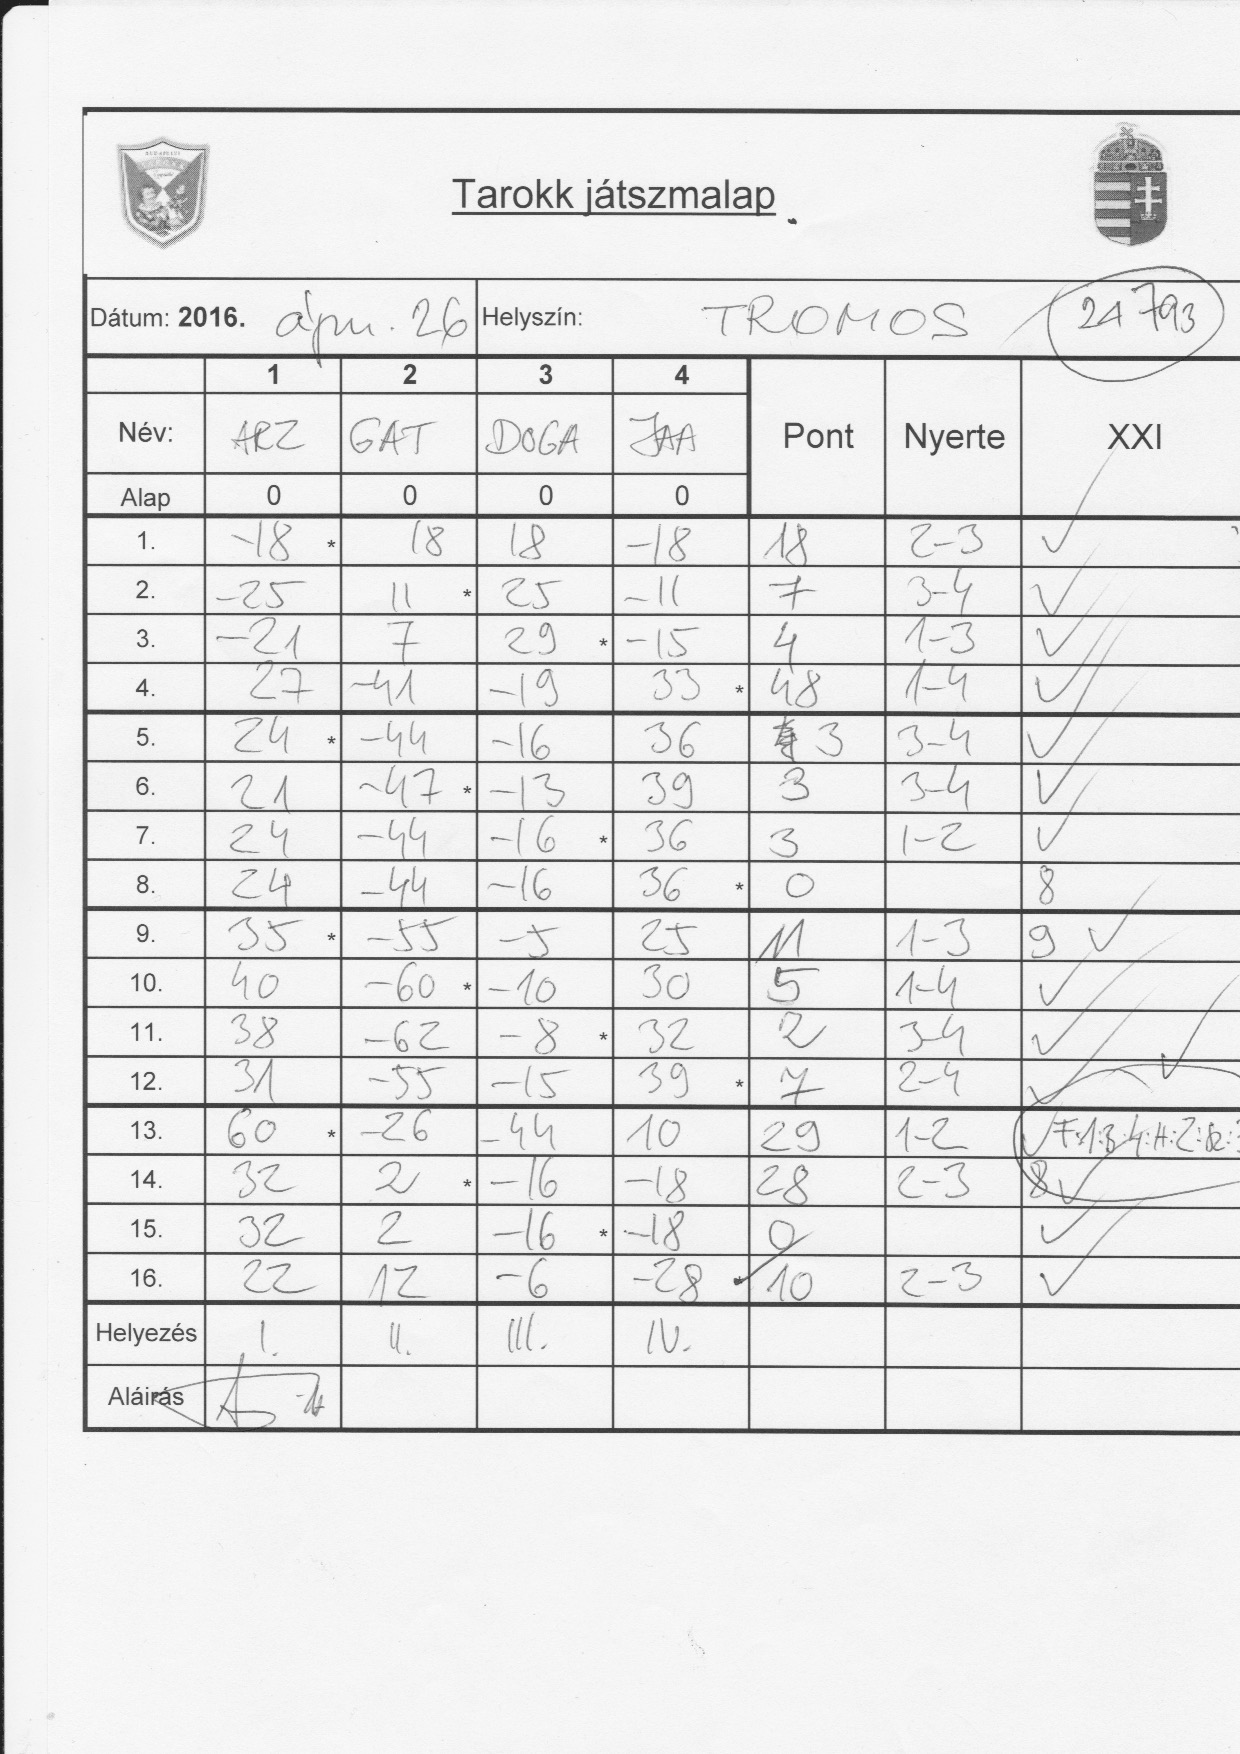 Tarokk játszmalap
Dátum: 2016. ápr. 26 Helyszín: TROMOS 24793
1 2 3 4
Név: ARZ GAT DOGA JAA Pont Nyerte XXI
Alap 0 0 0 0
1. -18 * 18 18 -18 18 2-3 ✓
2. -25 11 * 25 -11 7 3-4 ✓
3. -21 7 29 * -15 4 1-3 ✓
4. 27 -41 -19 33 * 48 1-4 ✓
5. 24 * -44 -16 36 3 3-4 ✓
6. 21 -47 * -13 39 3 3-4 ✓
7. 24 -44 -16 * 36 3 1-2 ✓
8. 24 -44 -16 36 * 0 8
9. 35 * -55 -5 25 11 1-3 9 ✓
10. 40 -60 * -10 30 5 1-4 ✓
11. 38 -62 -8 * 32 2 3-4 ✓
12. 31 -55 -15 39 * 7 2-4 ✓
13. 60 * -26 -44 10 29 1-2 ✓
14. 32 2 * -16 -18 28 2-3 8 ✓
15. 32 2 -16 * -18 0 ✓
16. 22 12 -6 -28 * 10 2-3 ✓
Helyezés I. II. III. IV.
Aláírás